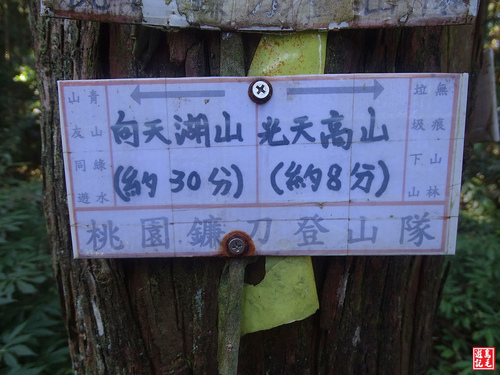 青山綠水
山友同遊
向天湖山
(約30分)
光天高山
(約8分)
無痕山林
垃圾下山
桃園鐮刀登山隊